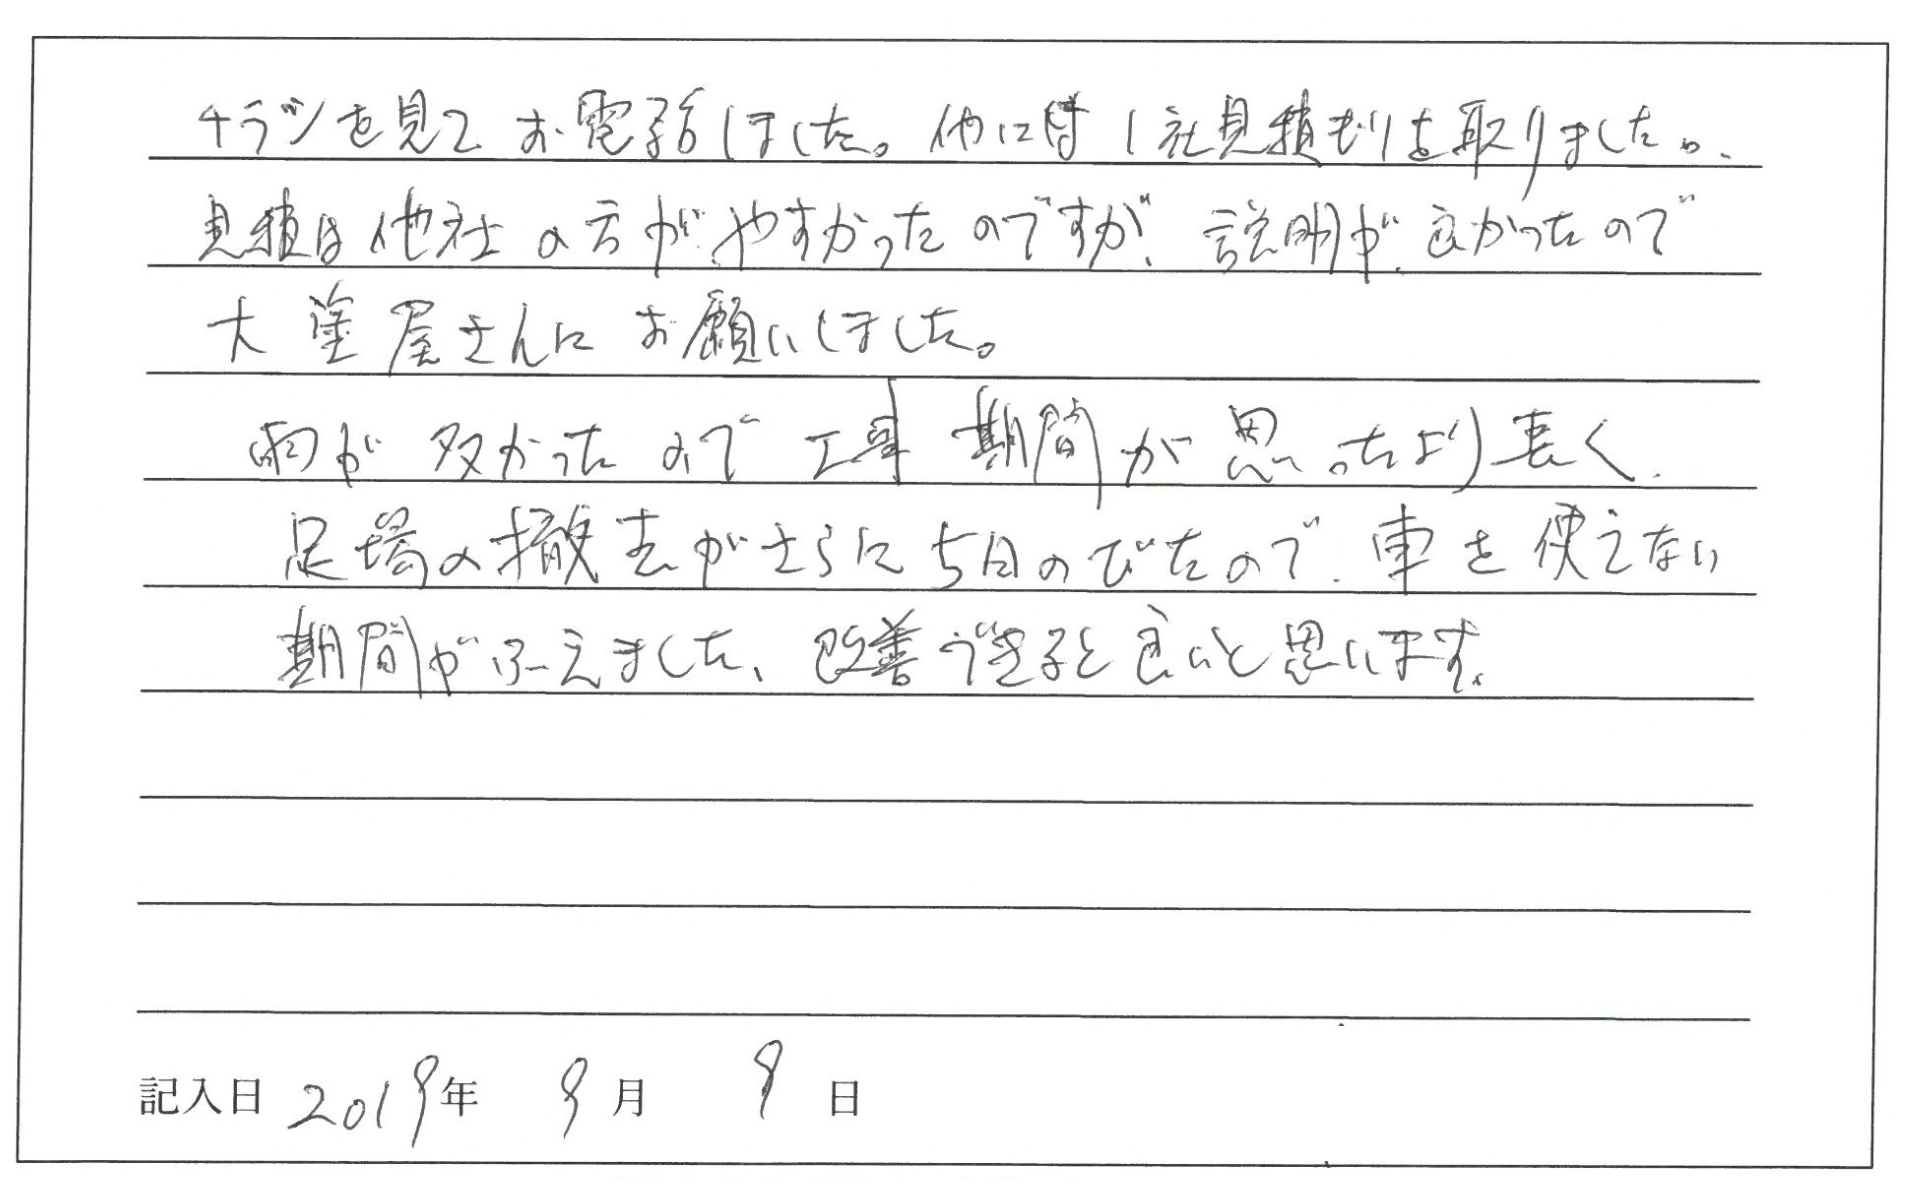 チラシを見てお電話しました。他には1社見積もりを取りました。
見積は他社の方がやすかったのですが、説明が良かったので
大塗屋さんにお願いしました。
雨が多かったので工事期間が思ったより長く、
足場の撤去がさらに5日のびたので、車を使えない
期間がふえました、改善できると良いと思います。
記入日 2019年 9月 9日